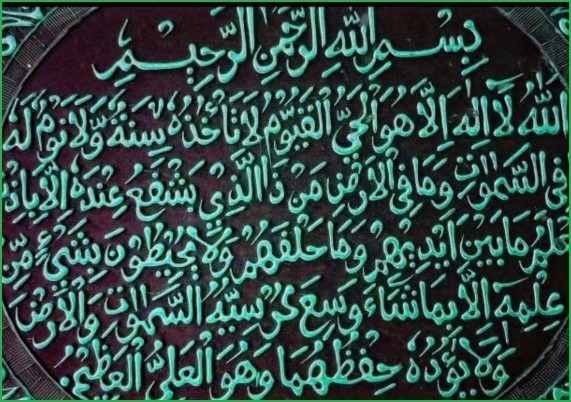 بِسْمِ اللهِ الرَّحْمٰنِ الرَّحِيْمِ
اَللهُ لَا اِلٰهَ اِلَّا هُوَ الْحَيُّ الْقَيُّوْمُ لَا تَاْخُذُهٗ سِنَةٌ وَّلَا نَوْمٌ لَهٗ
فِى السَّمٰوٰتِ وَمَا فِى الْاَرْضِ مَنْ ذَا الَّذِيْ يَشْفَعُ عِنْدَهٗ اِلَّا بِاِذْ
عْلَمُ مَا بَيْنَ اَيْدِيْهِمْ وَمَا خَلْفَهُمْ وَلَا يُحِيْطُوْنَ بِشَيْءٍ مِّنْ
عِلْمِهٖ اِلَّا بِمَا شَآءَ وَسِعَ كُرْسِيُّهُ السَّمٰوٰتِ وَالْاَرْضَ
وَلَا يَؤُدُهٗ حِفْظُهُمَا وَهُوَ الْعَلِيُّ الْعَظِيْمُ